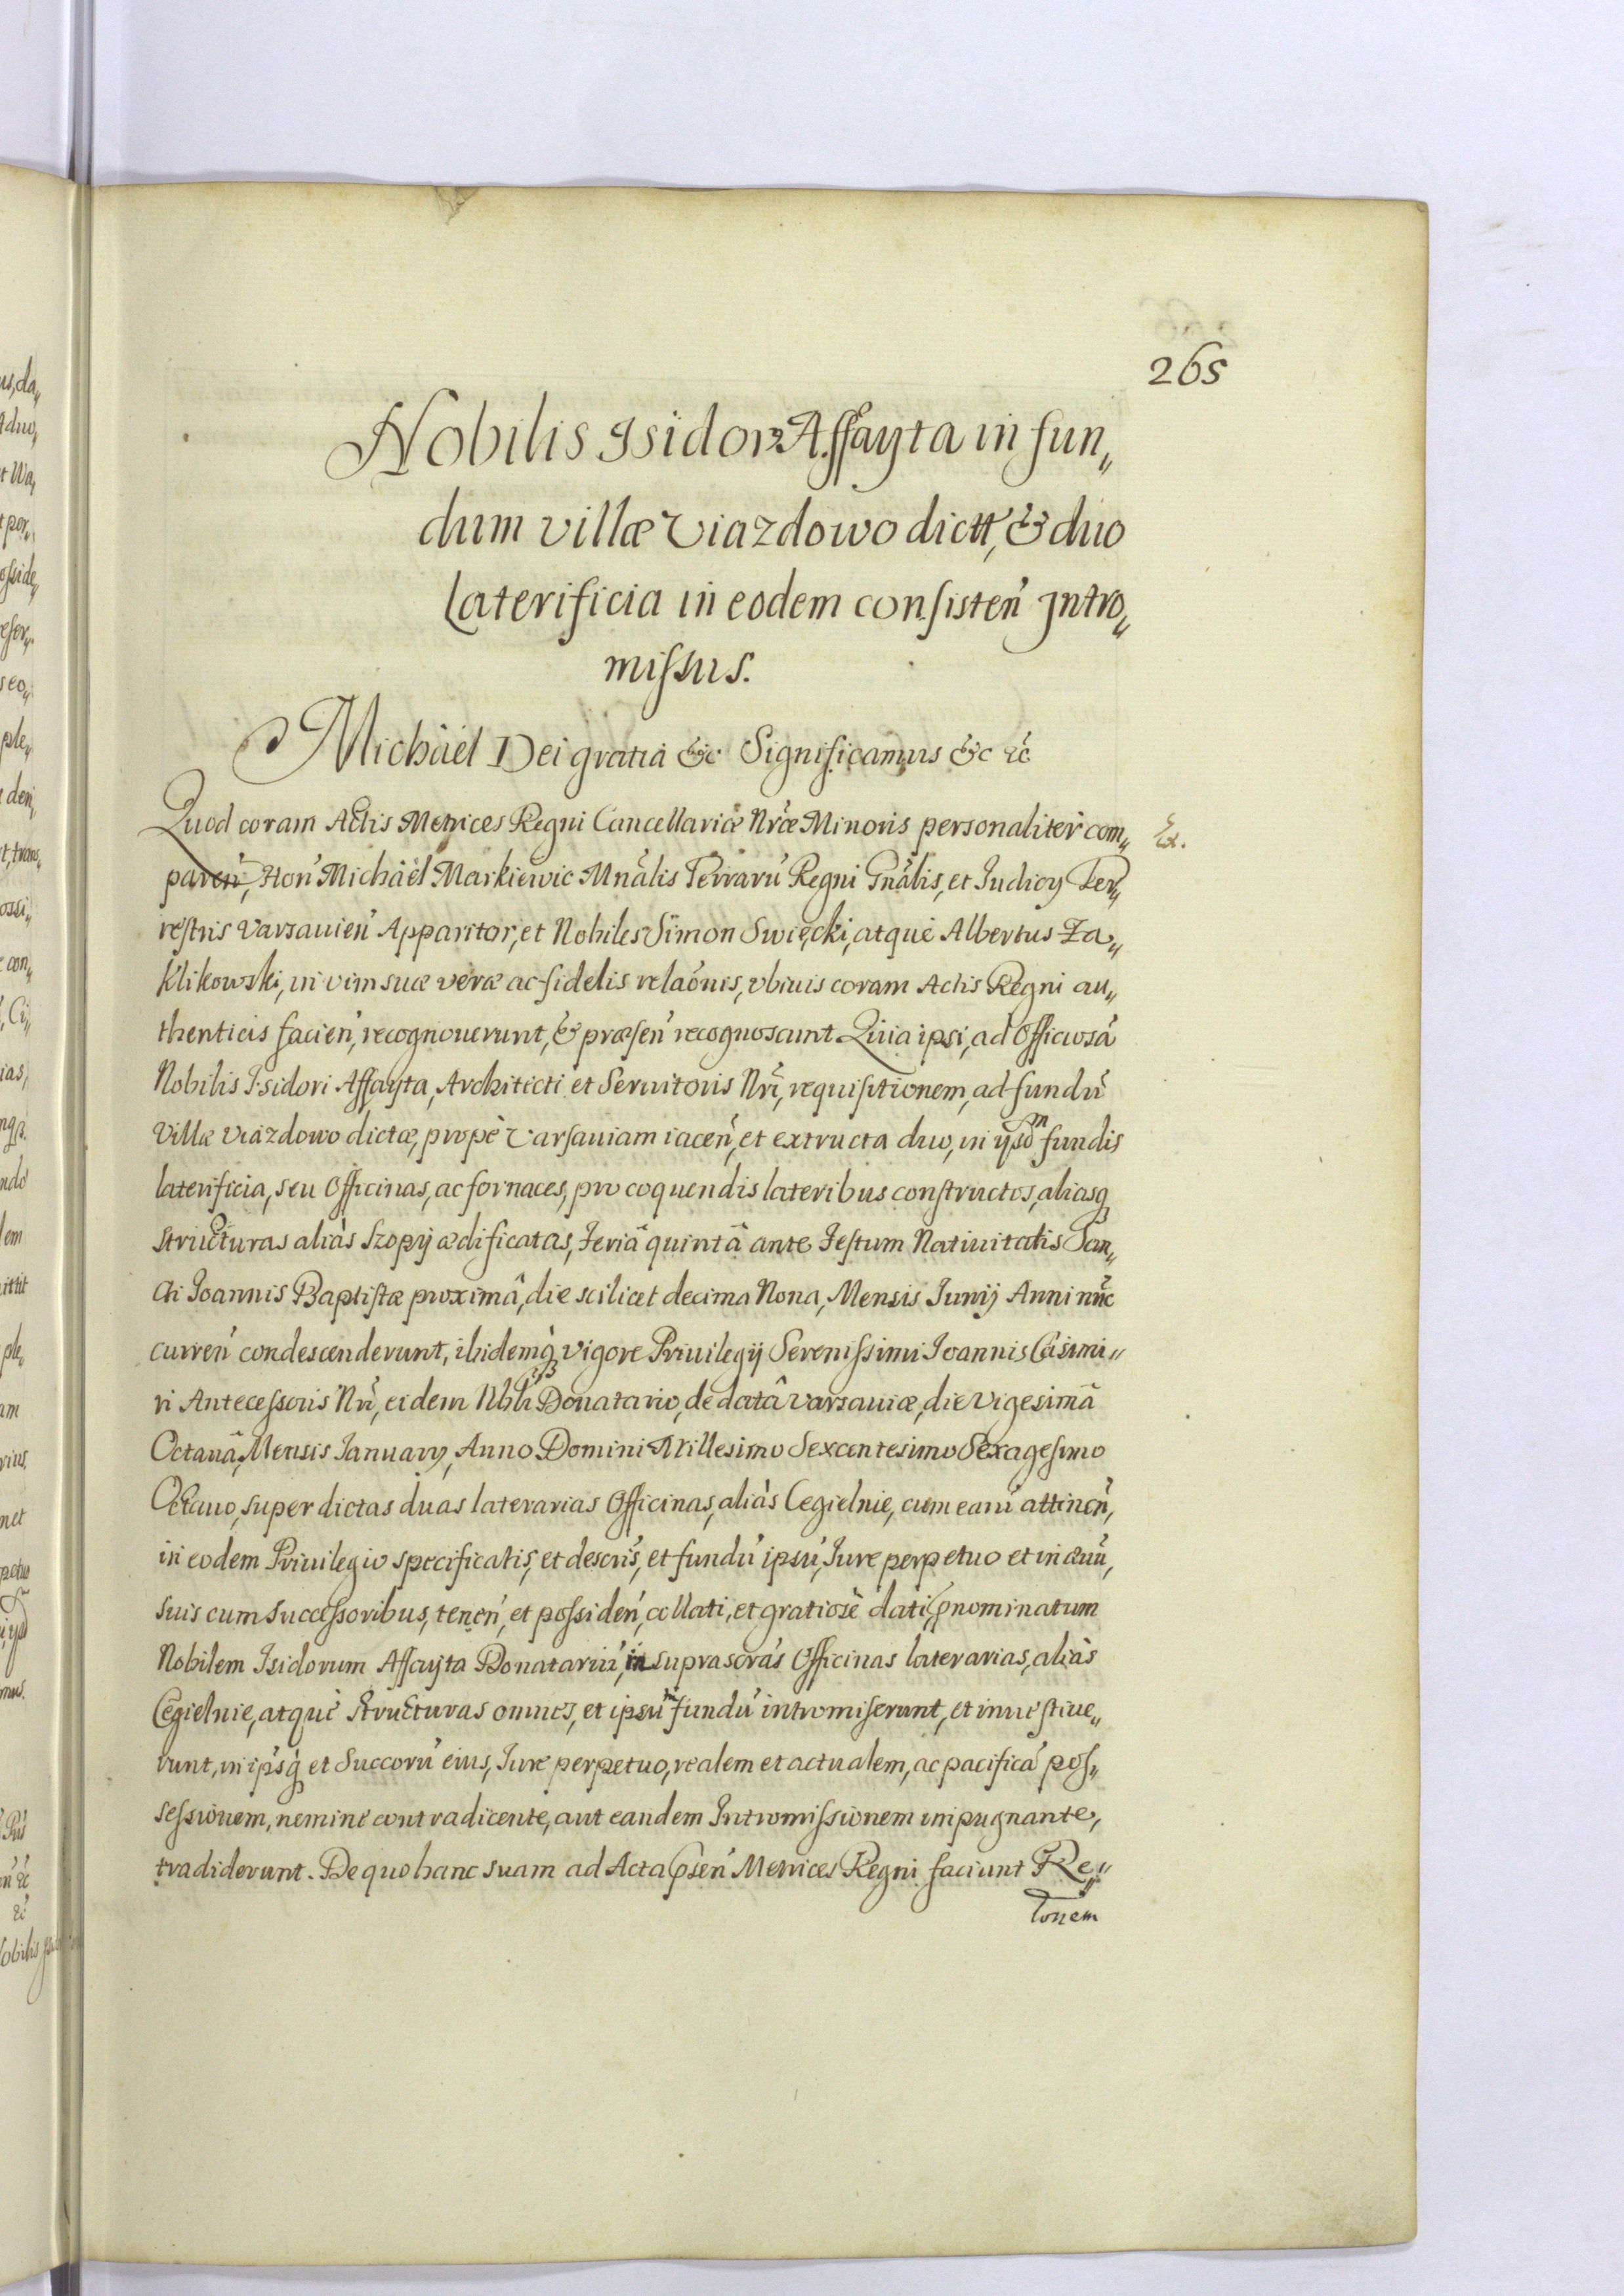 265
Nobilis Isidorꝫ Affayta in fun„
dum villæ Viazdowo dictt, & duo
Laterificia in eodem consisten̄ Intro„
missus.
Michäel Dei gratiâ &c Significamus &c &c̄
Quod coram Actis Metrices Regni Cancellariæ Nr̄æ Minoris personaliter com„
Ex.
paren̄, Hon̄ Michäël Markiewic Mnālis Terrarū Regni Gnālis, et Iudicy Ter„
restris Varsauien̄ Apparitor, et Nobiles Simon Swięcki, atque Albertus Za„
klikowski, in vim suæ veræ ac fidelis relaōnis, vbiuis coram Actis Regni au„
thenticis facien̄, recognouerunt, & præsen̄ recognoscunt Quia ipsi, ad Officiosā
Nobilis Isidori Affayta, Architecti et Seruitoris Nrī, requisitionem, ad fundū
Villæ Viazdowo dictæ, propè Varsauiam iacen̄, et extructa duo, in ijsdm fundis
laterificia, seu Officinas, ac fornaces, pro coquendis lateribus constructos, aliasq̨
structuras aliàs Szopy ædificatas, Feriâ quintâ ante Festum Natiuitatis San„
cti Ioannis Baptistæ proximâ, die scilicet decima Nona, Mensis Iunij Anni nūc
curren̄ condescenderunt, ibidemq̨ vigore Priuilegij Serenissimi Ioannis Casimi„
ri Antecessoris Nrī, eidem Nbli Donatario, de datâ Varsauiæ, die Vigesimâ
Octauâ, Mensis Ianuary, Anno Domini Millesimo Sexcentesimo Sexagesimo
Octauo, super dictas duas laterarias Officinas, aliàs Cegielnie, cum earū attinen̄,
in eodem Priuilegio specificatis, et descrīs, et fundū ipsū, Iure perpetuo et in æuū,
suis cum Successoribus, tenen̄, et possiden̄, collati, et gratiosè dati, p̄nominatum
Nobilem Isidorum Affayta Donatariū, in suprascrās Officinas laterarias, aliàs
Cegielnie, atque Structuras omnes, et ipsum fundū intromiserunt, et inuestiue„
runt, in ip̄sq̨ et Succorū eius, Iure perpetuo, realem et actualem, ac pacificā pos„
sessionem, nemine contradicente, aut eandem Intromissionem inpugnante,
tradiderunt. De quo hanc suam ad Acta p̄sen̄ Metrices Regni faciunt Re„
lonem